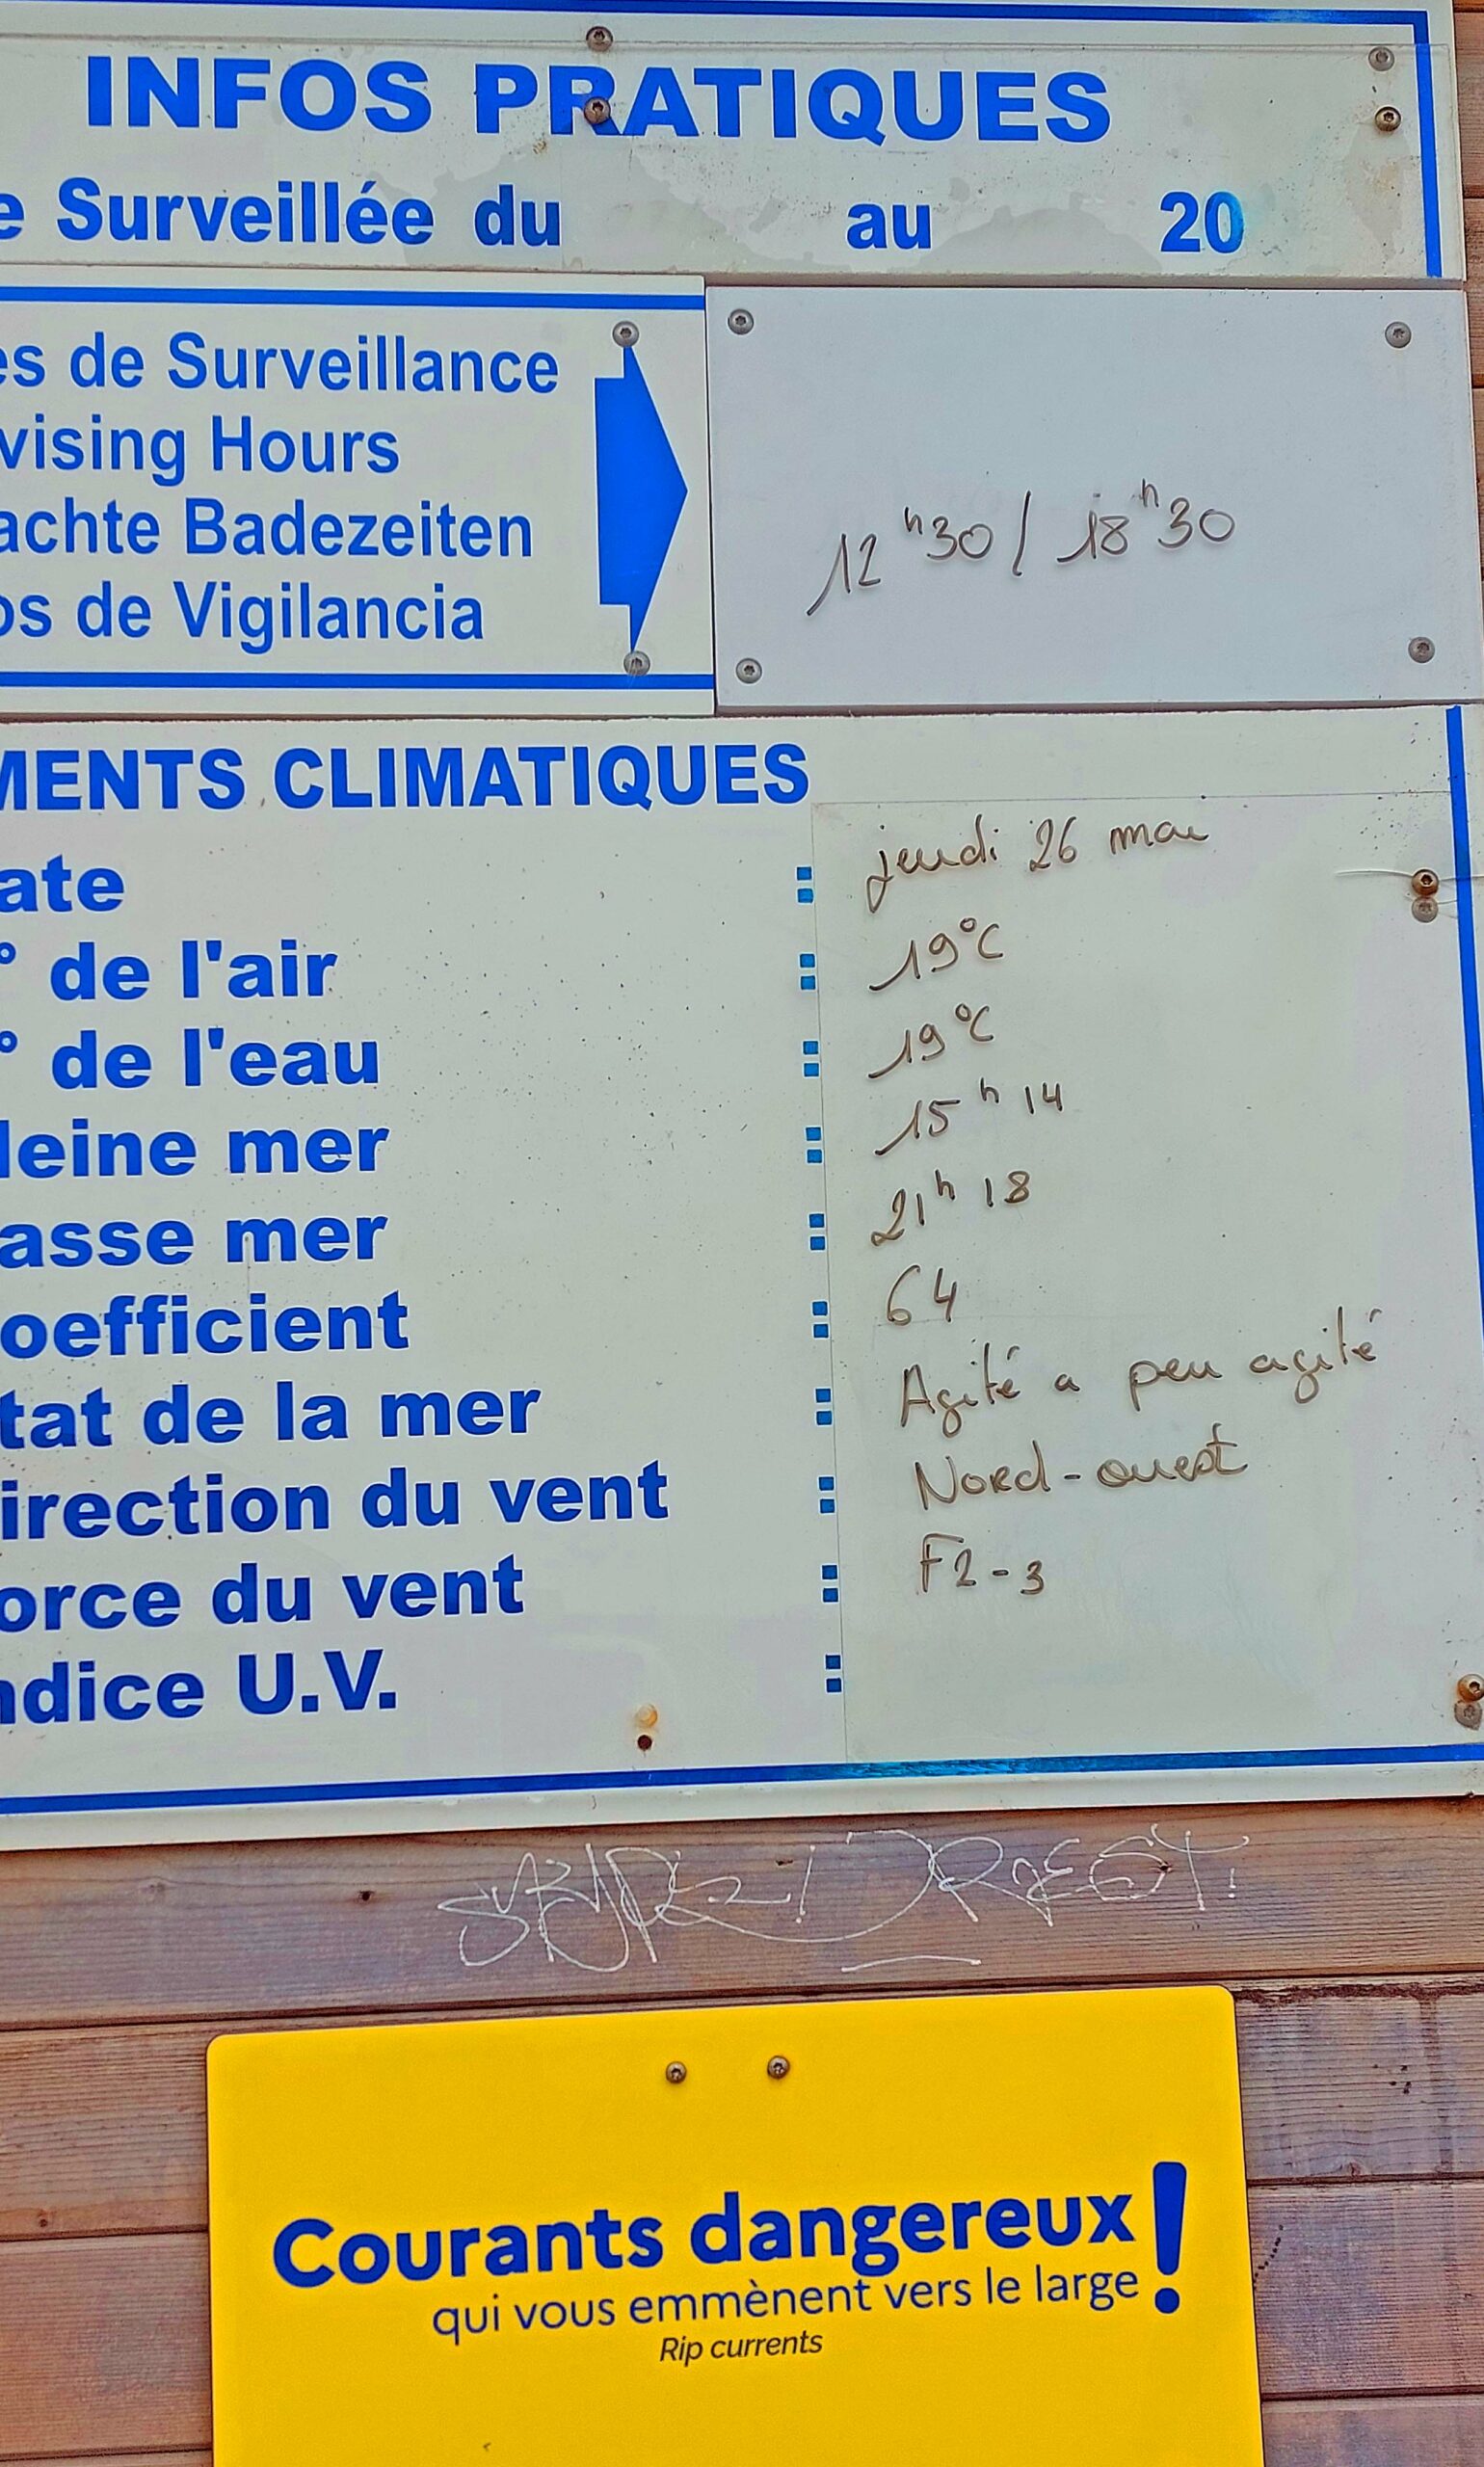 INFOS PRATIQUES
e Surveillée du au 20
es de Surveillance
vising Hours
achte Badezeiten
os de Vigilancia
12h30 / 18h30
MENTS CLIMATIQUES
ate : jeudi 26 mai
° de l'air : 19°C
° de l'eau : 19°C
leine mer : 15h14
asse mer : 21h18
oefficient : 64
tat de la mer : Agité a peu agité
irection du vent : Nord-ouest
orce du vent : F2-3
ndice U.V. :
Courants dangereux!
qui vous emmènent vers le large
Rip currents